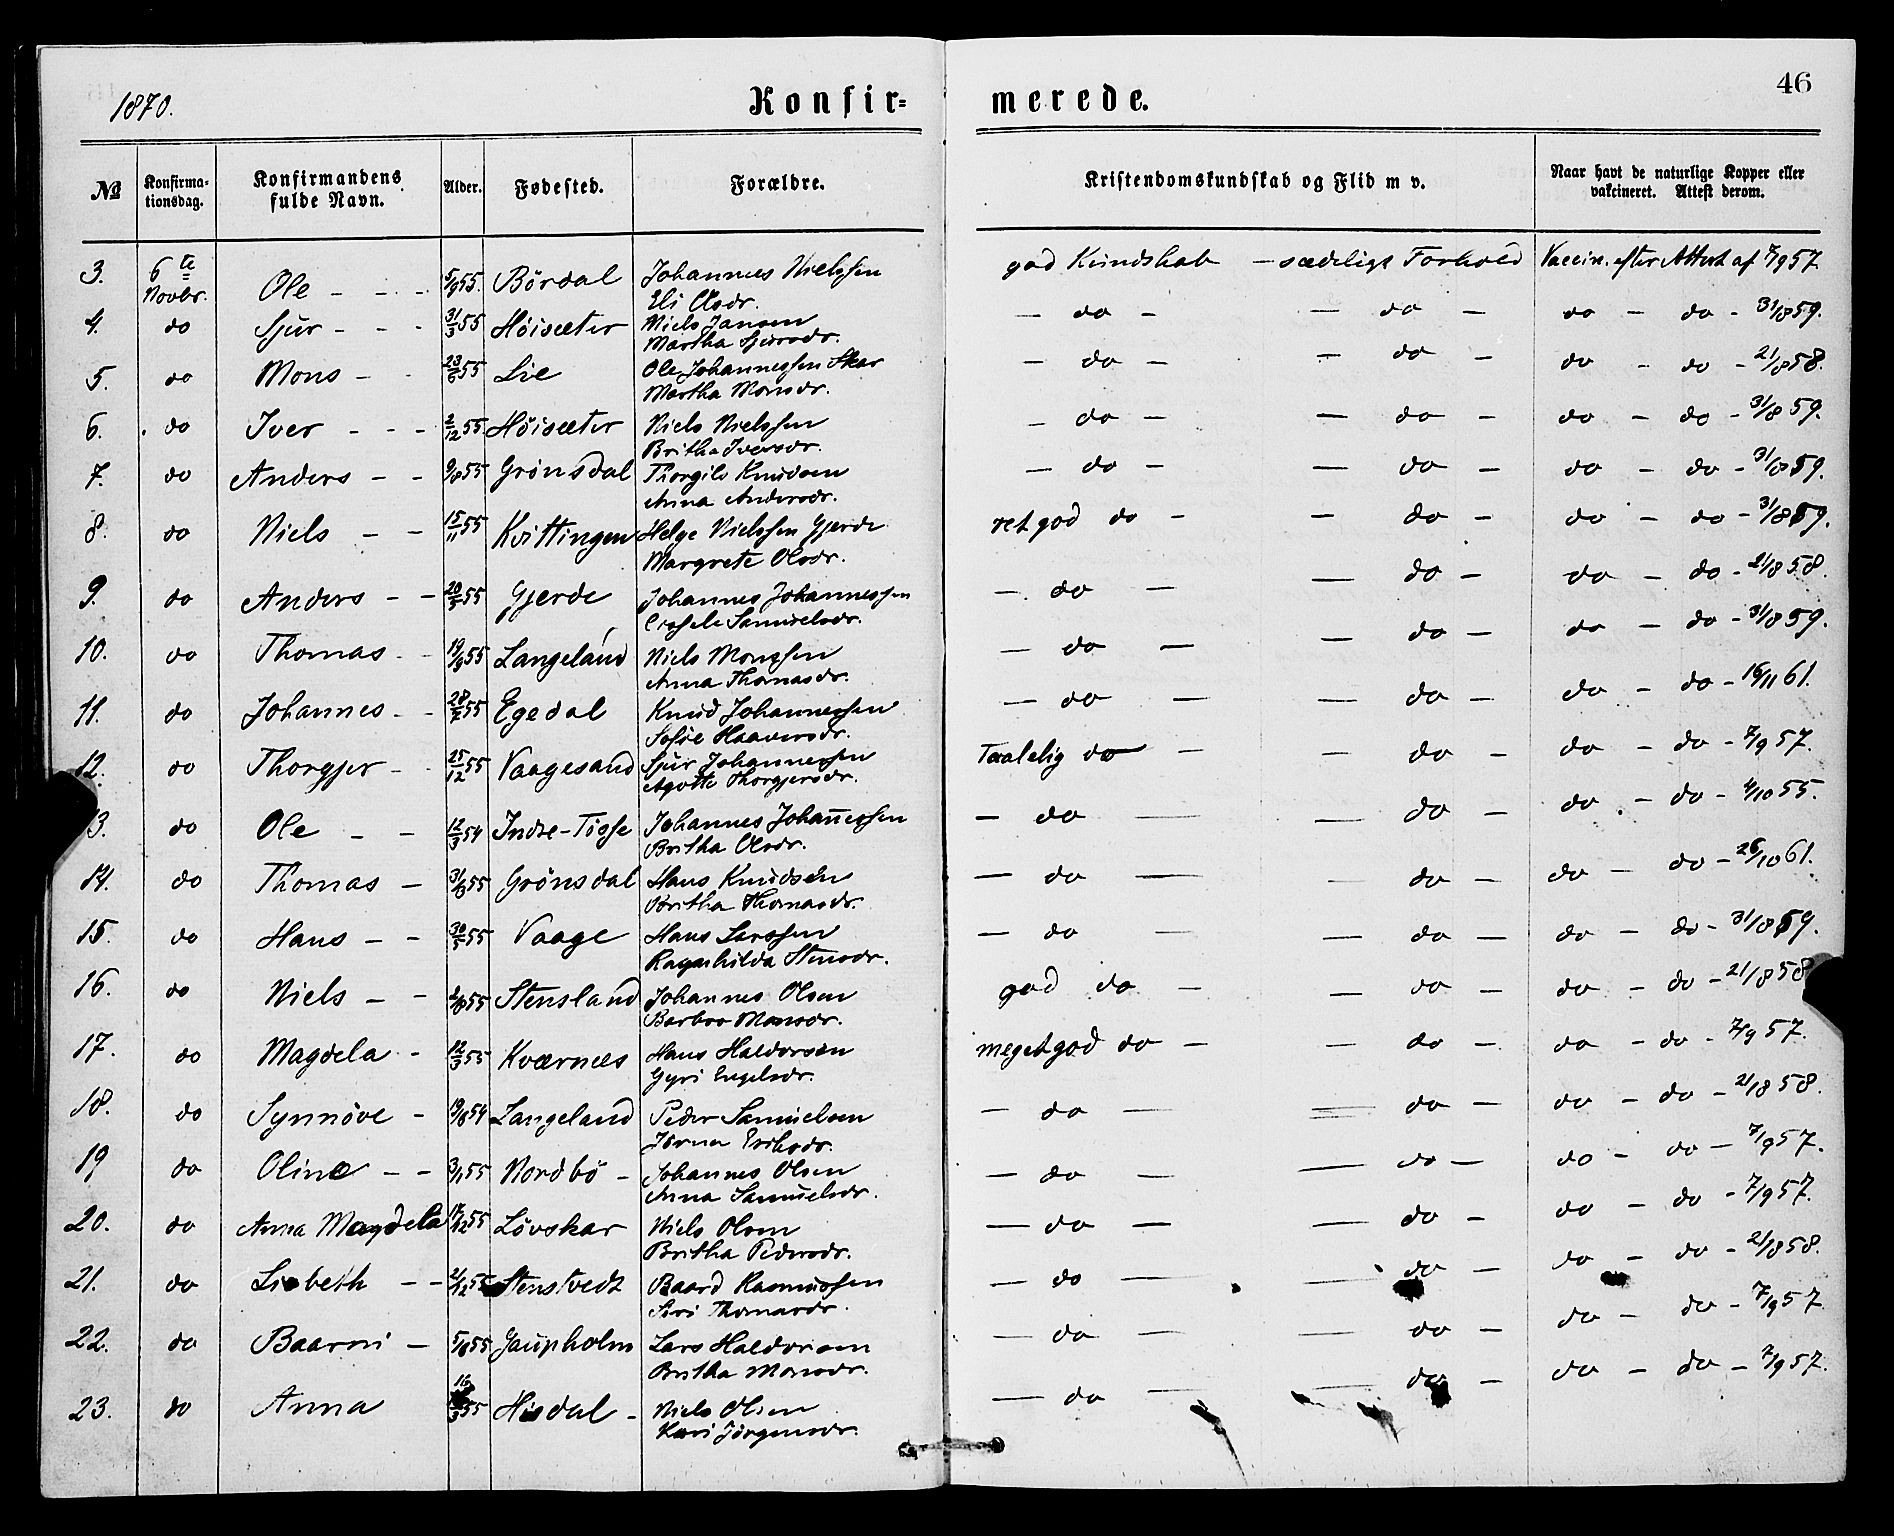 1870.
Konfir=
merede.
46
№
Konfirma-
tionsdag.
Konfirmandens
fulde Navn.
Alder.
Fødested.
Forældre.
Kristendomskundskab og Flid m v.
Naar havt de naturlige Kopper eller
vakcineret. Attest derom.
3. 6te Novbr. Ole - - - 5/9 55. Bördal Johannes Nielssen god Kundskab - sædeligt Forhold Vaccin. efter Attest af 7/9 57.
Eli Olsdr.
4. do Sjur - - - 31/3 55 Höisæter Niels Jansen - do - - do - do - do - 31/8 59.
Martha Sjursdr.
5. do Mons - - 23/6 55 Lie Ole Johannessen Skar - do - - do - do - do - 21/8 58.
Martha Monsdr.
6. do Iver - - - 2/12 55 Höisæter Niels Nielssen - do - - do - do - do - 31/8 59.
Britha Iversdr.
7. do Anders - - 9/8 55 Grönsdal Thorgils Knudsen - do - - do - do - do - 31/8 59.
Anna Andersdr.
8. do Niels - - 15/11 55 Kvittingen Helge Nielssen Gjerde ret god do - - do - do - do - 31/8 59.
Margrete Olsdr.
9. do Anders - - 20/5 55 Gjerde Johannes Johannessen - do - - do - do - do - 21/8 58.
Samuelsdr.
10. do Thomas - - 19/9 55 Langeland Niels Monssen - do - - do - do - do - 31/8 59.
Anna Thomasdr.
11. do Johannes - - 28/7 55 Egedal Knud Johannessen - do - - do - do - do - 16/11 61.
Sofie Haaversdr.
12. do Thorgjer - - 25/12 55 Vaagesand Sjur Johannessen Taalelig do - - do - do - do - 7/9 57.
Agotte Thorgjersdr.
13. do Ole - - 12/3 54 Indre-Tösse Johannes Johannessen - do - - do - do - do - 4/10 55.
Britha Olsdr.
14. do Thomas - 55 Grönsdal Hans Knudsen - do - - do - do - do - 26/10 61.
Britha Thomasdr.
15. do Hans - - 30/5 55 Vaage Hans Larssen - do - - do - do - do - 31/8 59.
Ragnhilda Stensdr.
16. do Niels - - 2/8 55 Stensland Johannes Olsen god do - - do - do - do - 21/8 58
Barbro Monsdr.
17. do Magdela - 12/3 55 Kværnæs Hans Haldorsen meget god do - - do - do - do - 7/9 57.
Gyri Engelsdr.
18. do Synnöve - 19/8 54 Langeland Peder Samuelsen - do - - do - do - do - 21/8 58.
Eriksdr.
19 do Oline - - 3/11 55 Nordbö - Johannes Olsen - do - - do - do - do - 7/9 57.
Anna Samuelsdr.
20. do Anna Magdela 17/12 55 Lövskar Niels Olsen - do - - do - do - do - 7/9 57.
Britha Pedersdr.
21. do Lisbeth - - Stenstvedt Baard Rasmussen - do - - do - do - do - 21/8 58.
Siri Thomasdr.
22. do Baarni - 5/8 55 Gaupholm Lars Haldorsen - do - - do - do - do - 7/9 57
Britha Monsdr.
23. do Anna 16/3 55 Hisdal - Niels Olsen - do - - do - do - do - 7/9 57.
Kari Jörgensdr.